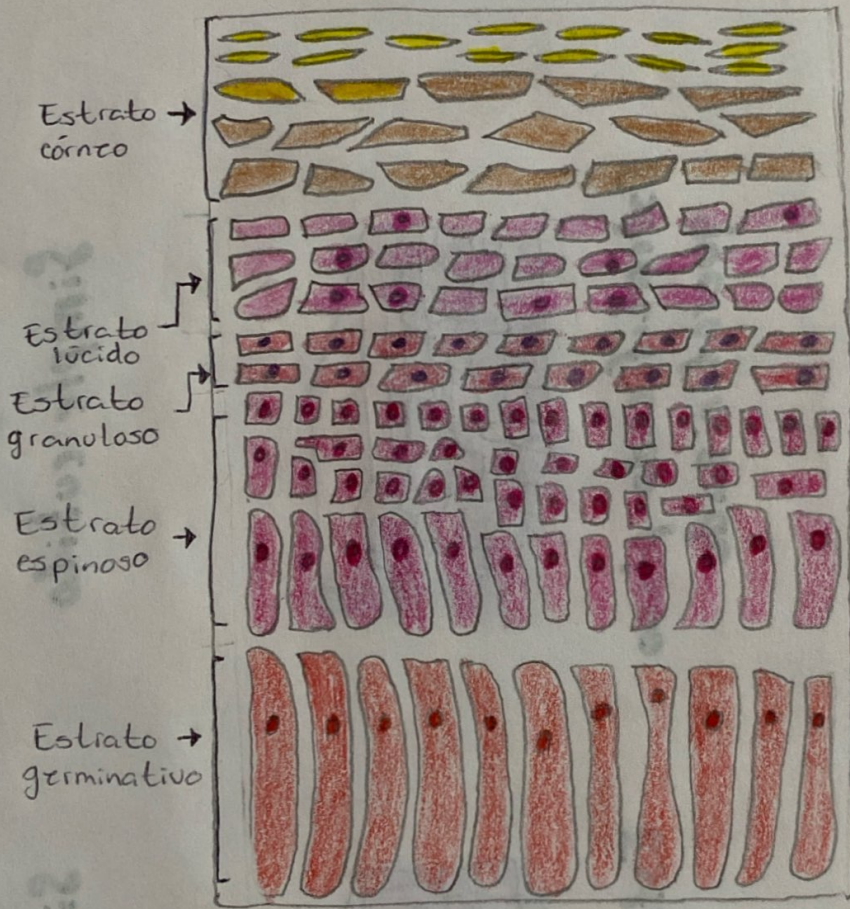 Estrato
córneo
Estrato
lúcido
Estrato
granuloso
Estrato
espinoso
Estrato
germinativo